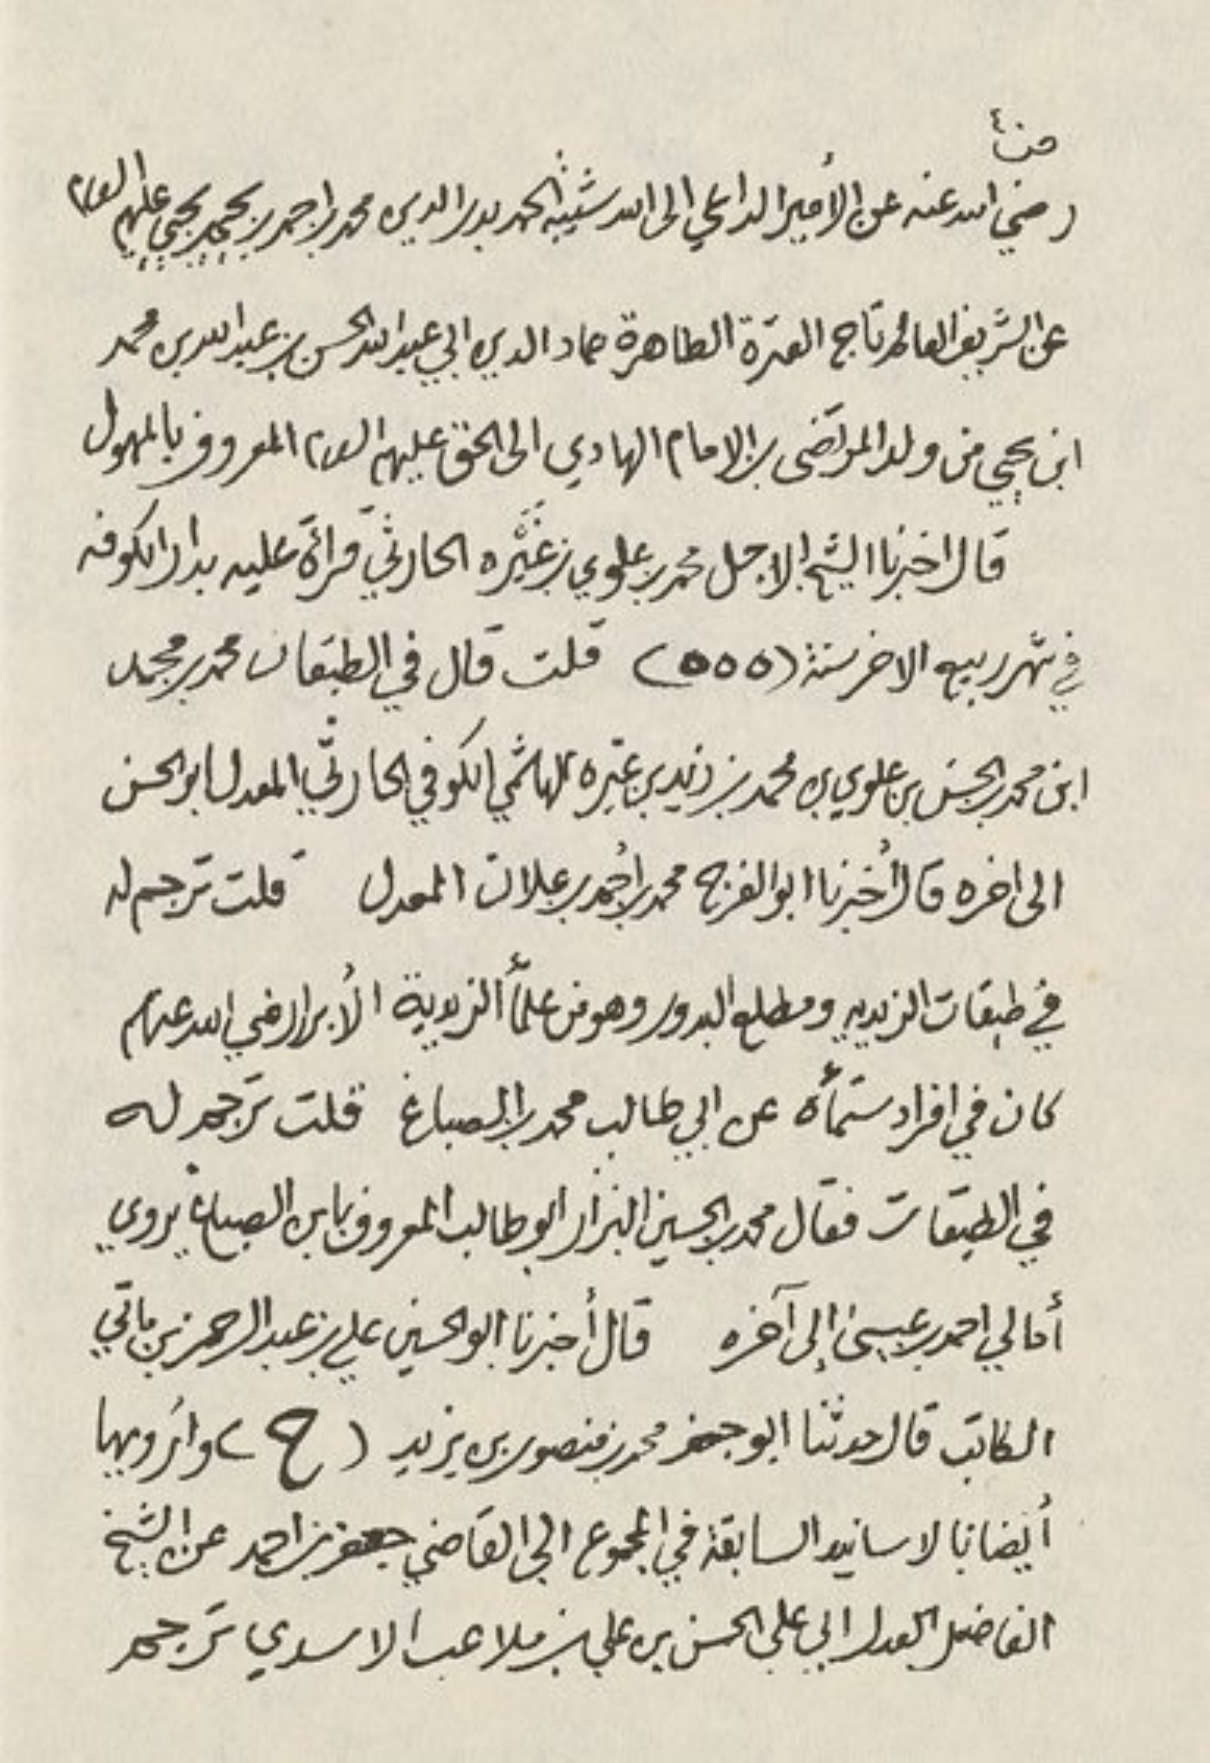 ص٤
رضي الله عنه عن الأمير الداعي الى الله شيبة الحمد بدر الدين محمد بن احمد بن يحيى بن يحيى عليهم السلام
عن الشريف العالم تاج العترة الطاهرة عماد الدين ابي عبدالله الحسن بن عبدالله بن محمد
ابن يحيى من ولد المرتضى بن الامام الهادي الى الحق عليهم السلام المعروف بالمهول
قال اخبرنا الشيخ الاجل محمد بن علوي بن غَبَّره الحارثي قرأة عليه بدار الكوفه
في شهر ربيع الاخر سنة (٥٥٥) قلت قال في الطبقات محمد بن محمد
ابن محمد بن الحسن بن علوي بن محمد بن زيد بن غبره الهاشمي الكوفي الحارثي المعدل ابو الحسن
الى اخره قال أخبرنا ابو الفرج محمد بن أحمد بن علان المعدل قلت ترجم له
في طبقات الزيديه ومطلع البدور وهو من علمأ الزيدية الأبرار رضي الله عنهم
كان في افراد ستمأه عن ابي طالب محمد بن الصباغ قلت ترجم له
في الطبقات فقال محمد بن الحسين البزار ابو طالب المعروف بابن الصباغ يروي
أمالي احمد بن عيسى إلى آخره قال أخبرنا ابو الحسين علي بن عبد الرحمن بن ماتي
الكاتب قال حدثنا ابو جعفر محمد بن منصور بن يزيد (ح) وارُويها
أيضا بالاسانيد السابقة في المجموع الى القاضي جعفر بن احمد عن الشيخ
الفاضل العدل ابي علي الحسن بن علي بن ملاعب الاسدي ترجم